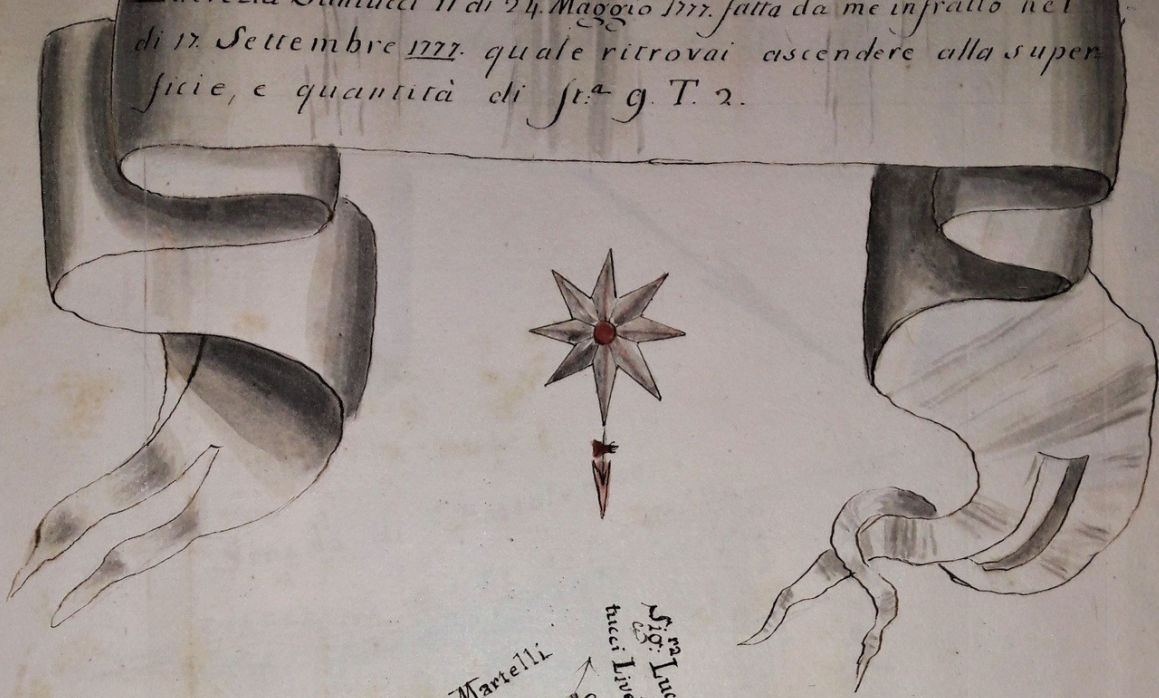 di 24. Maggio 1777. fatta da me infratto nel
di 17. Settembre 1777. quale ritrovai ascendere alla super-
ficie, e quantità di St:ª 9. T. 2.
Martelli
Sig:ra Luc
tucci Live